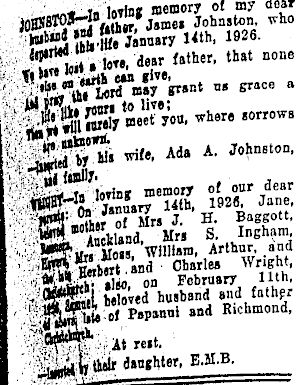 JOHNSTON—In loving memory of my dear
husband and father, James Johnston, who
departed this life January 14th, 1926.
We have lost a love, dear father, that none
else on earth can give,
And pray the Lord may grant us grace a
life like yours to live;
Then we will surely meet you, where sorrows
are unknown.
—Inserted by his wife, Ada A. Johnston,
and family.
WRIGHT—In loving memory of our dear
parents: On January 14th, 1926, Jane,
beloved mother of Mrs J. H. Baggott,
Auckland, Mrs S. Ingham,
Mrs Moss, William, Arthur, and
the late Herbert and Charles Wright,
Christchurch; also, on February 11th,
Samuel, beloved husband and father
of above, late of Papanui and Richmond,
Christchurch.
At rest.
—Inserted by their daughter, E.M.B.